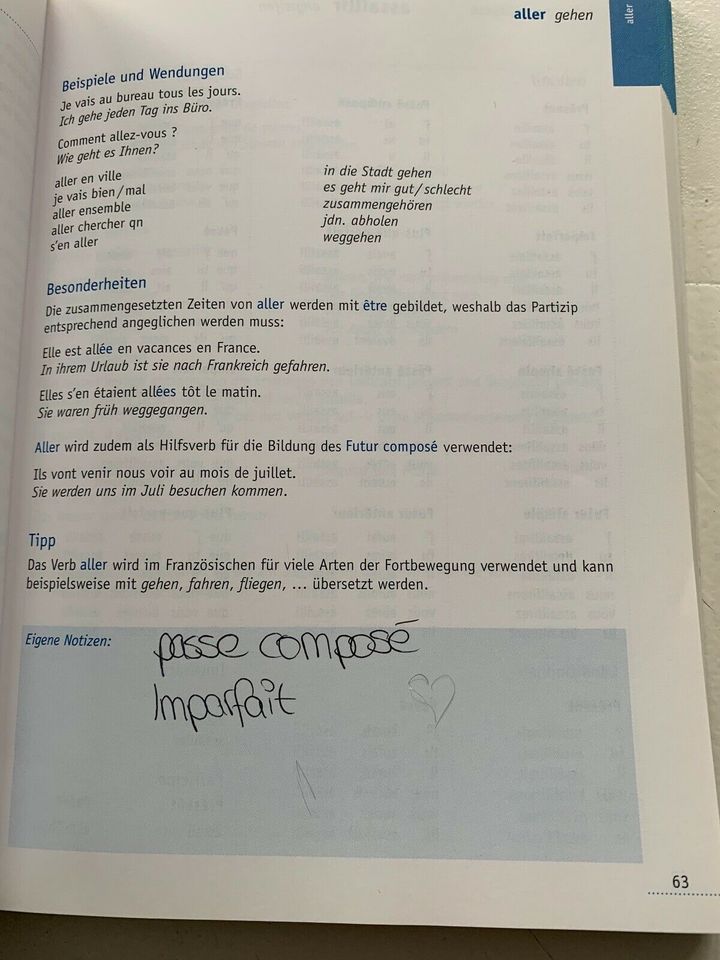 aller gehen
aller
Beispiele und Wendungen
Je vais au bureau tous les jours.
Ich gehe jeden Tag ins Büro.
Comment allez-vous ?
Wie geht es Ihnen?
aller en ville in die Stadt gehen
je vais bien / mal es geht mir gut / schlecht
aller ensemble zusammengehören
aller chercher qn jdn. abholen
s'en aller weggehen
Besonderheiten
Die zusammengesetzten Zeiten von aller werden mit être gebildet, weshalb das Partizip
entsprechend angeglichen werden muss:
Elle est allée en vacances en France.
In ihrem Urlaub ist sie nach Frankreich gefahren.
Elles s'en étaient allées tôt le matin.
Sie waren früh weggegangen.
Aller wird zudem als Hilfsverb für die Bildung des Futur composé verwendet:
Ils vont venir nous voir au mois de juillet.
Sie werden uns im Juli besuchen kommen.
Tipp
Das Verb aller wird im Französischen für viele Arten der Fortbewegung verwendet und kann
beispielsweise mit gehen, fahren, fliegen, ... übersetzt werden.
Eigene Notizen: passe composé
Imparfait
63